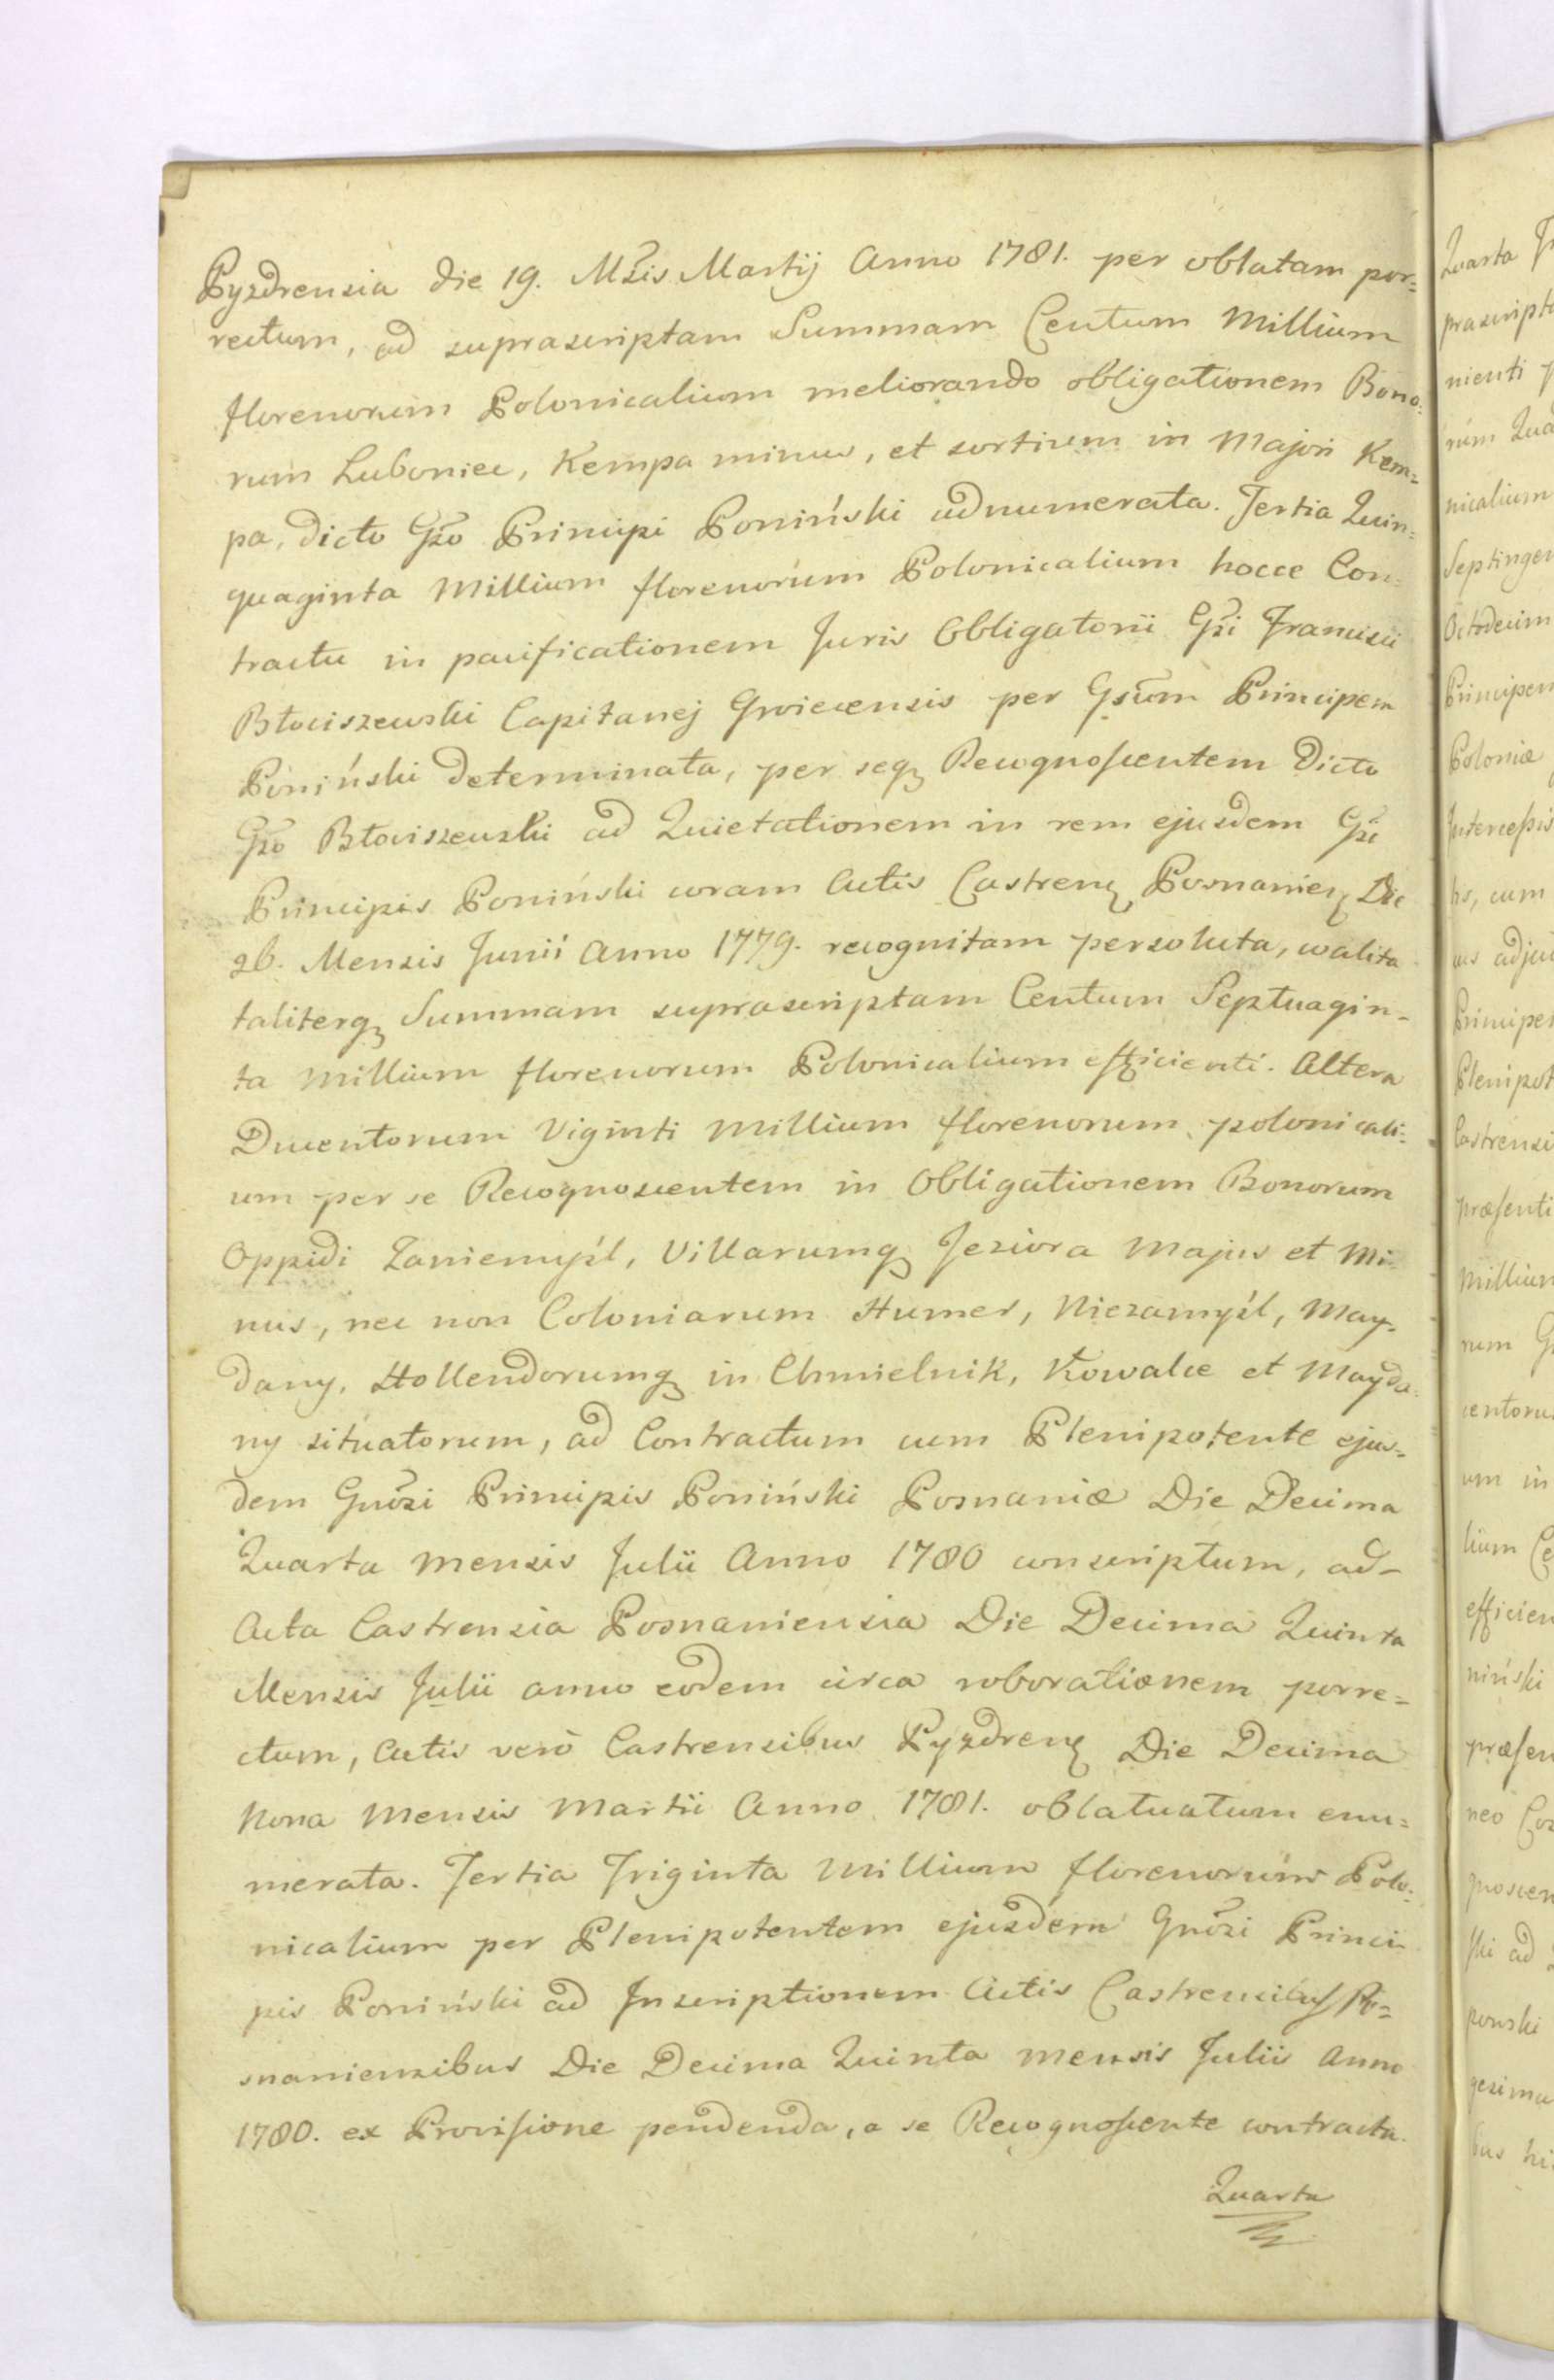 Pyzdrensia die 19. Msis Martij Anno 1781. per oblatam por=
rectum, ad suprascriptam Summam Centum Millium
florenorum Polonicalium meliorando obligationem Bono=
rum Luboniec, Kempa minus, et sortium in Majori Kem=
pa, dicto Gso Principi Poniński adnumerata. Tertia Quin=
quaginta Millium florenorum Polonicalium hocce Con=
tractu in pacificationem Juris Obligatorii Gsi Francisci
Błociszewski Capitanej Groiecensis per Gsum Principem
Poniński determinata, per seq Recognoscentem Dicto
Gso Błociszewski ad Quietationem in rem ejusdem Gsi
Principis Poniński coram Actis Castren Posnanien Die
26. Mensis Junii Anno 1779. recognitam persoluta, qualita
taliterq Summam suprascriptam Centum Septuagin-
ta Millium florenorum Polonicalium efficienti. Altera
Ducentorum Viginti Millium florenorum polonicali=
um per se Recognoscentem in Obligationem Bonorum
Oppidi Zaniemyśl, Villarumq Jeziora Majus et Mi=
nus, nec non Coloniarum Humer, Niezamyśl, May-
dany, Hollendorumq in Chmielnik, Kowalce et Mayda=
ny situatorum, ad Contractum cum Plenipotente ejus=
dem Gnosi Principis Poniński Posnaniæ Die Decima
Quarta Mensis Julii Anno 1780 conscriptum, ad-
Acta Castrensia Posnaniensia Die Decima Quinta
Mensis Julii anno eodem circa roborationem porre=
ctum, Actis verò Castrensibus Pyzdren Die Decima
Nona Mensis Martii Anno 1781. oblatuatum enu=
merata. Tertia Triginta Millium florenorum Polo=
nicalium per Plenipotentem ejusdem Gnosi Princi=
pis Poniński ad Inscriptionem Actis Castrensibus Po=
snaniensibus Die Decima Quinta Mensis Julii Anno
1780. ex Provisione pendenda, a se Recognoscente contracta.
Quarta
Quarta
præscript
nienti
rum Qua
nicalium
Septingen
Octodecim
Principem
Poloniæ
Intercessis
cum
Principe
Plenipot
Castrensi
præsenti
Millium
rum
centoru
um in
lium
efficien
niński
præsen
neo
gnoscen
ski ad
gesima
bus